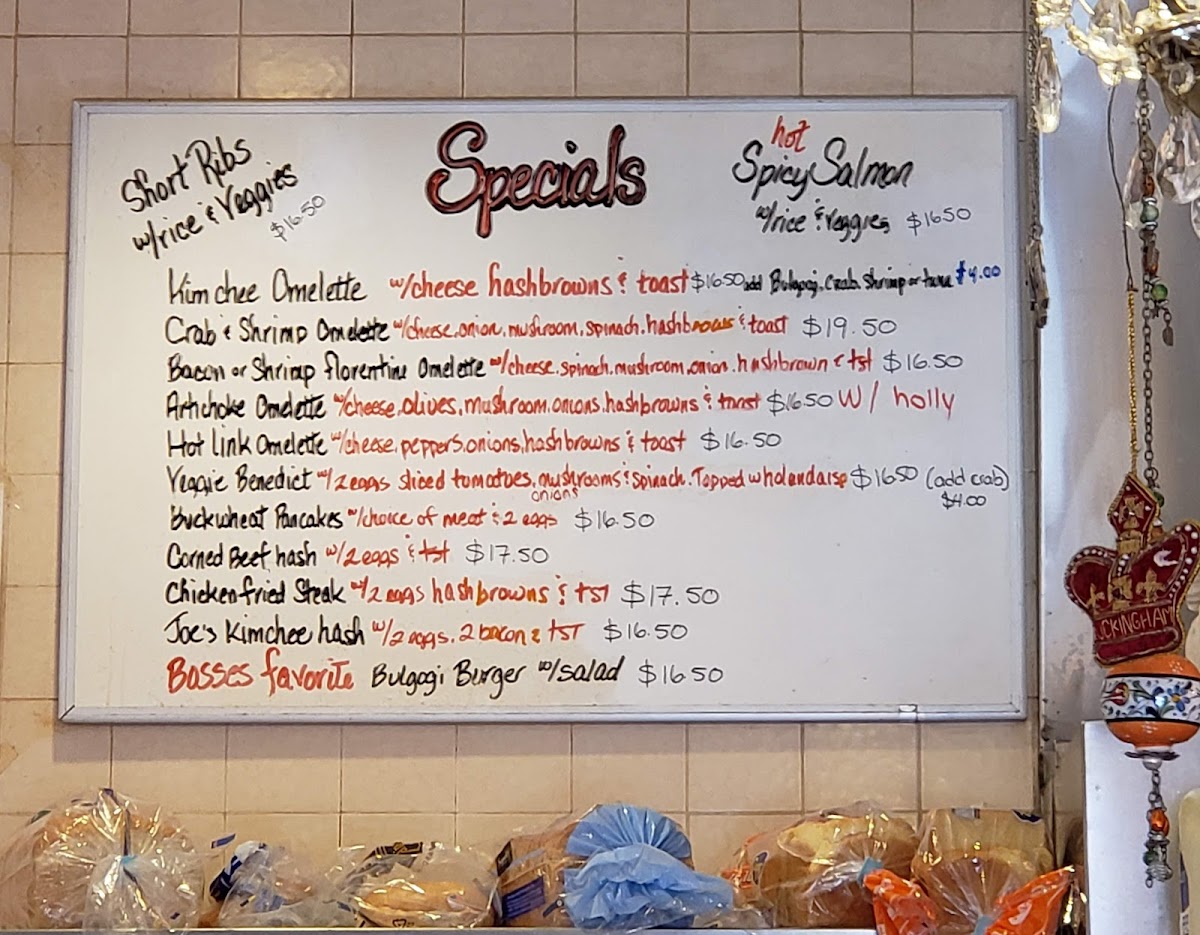 Specials
Short Ribs
w/rice & Veggies
$16.50
hot
Spicy Salmon
w/rice & Veggies $16 50
Kimchee Omelette w/cheese hashbrowns & toast $16.50 add Bulgogi, Crab, Shrimp or tuna $4.00
Crab & Shrimp Omelette w/cheese, onion, mushroom, spinach, hashbrowns & toast $19.50
Bacon or Shrimp florentine Omelette w/cheese, spinach, mushroom, onion, hashbrown & tst $16.50
Artichoke Omelette w/cheese, olives, mushroom, onions, hashbrowns & toast $16.50 w/ holly
Hot link Omelette w/cheese, peppers, onions, hashbrowns & toast $16.50
Veggie Benedict w/2 eggs sliced tomatoes, mushrooms & spinach. Topped w holandaise $16 50 (add crab)
onions
$4.00
Buckwheat Pancakes w/choice of meat & 2 eggs $16.50
Corned Beef hash w/2 eggs & tst $17.50
Chicken fried Steak w/2 eggs hashbrowns & tst $17.50
Joe's Kimchee hash w/2 eggs, 2 bacon & TST $16.50
Bosses favorite Bulgogi Burger w/salad $16.50
UCKINGHAM